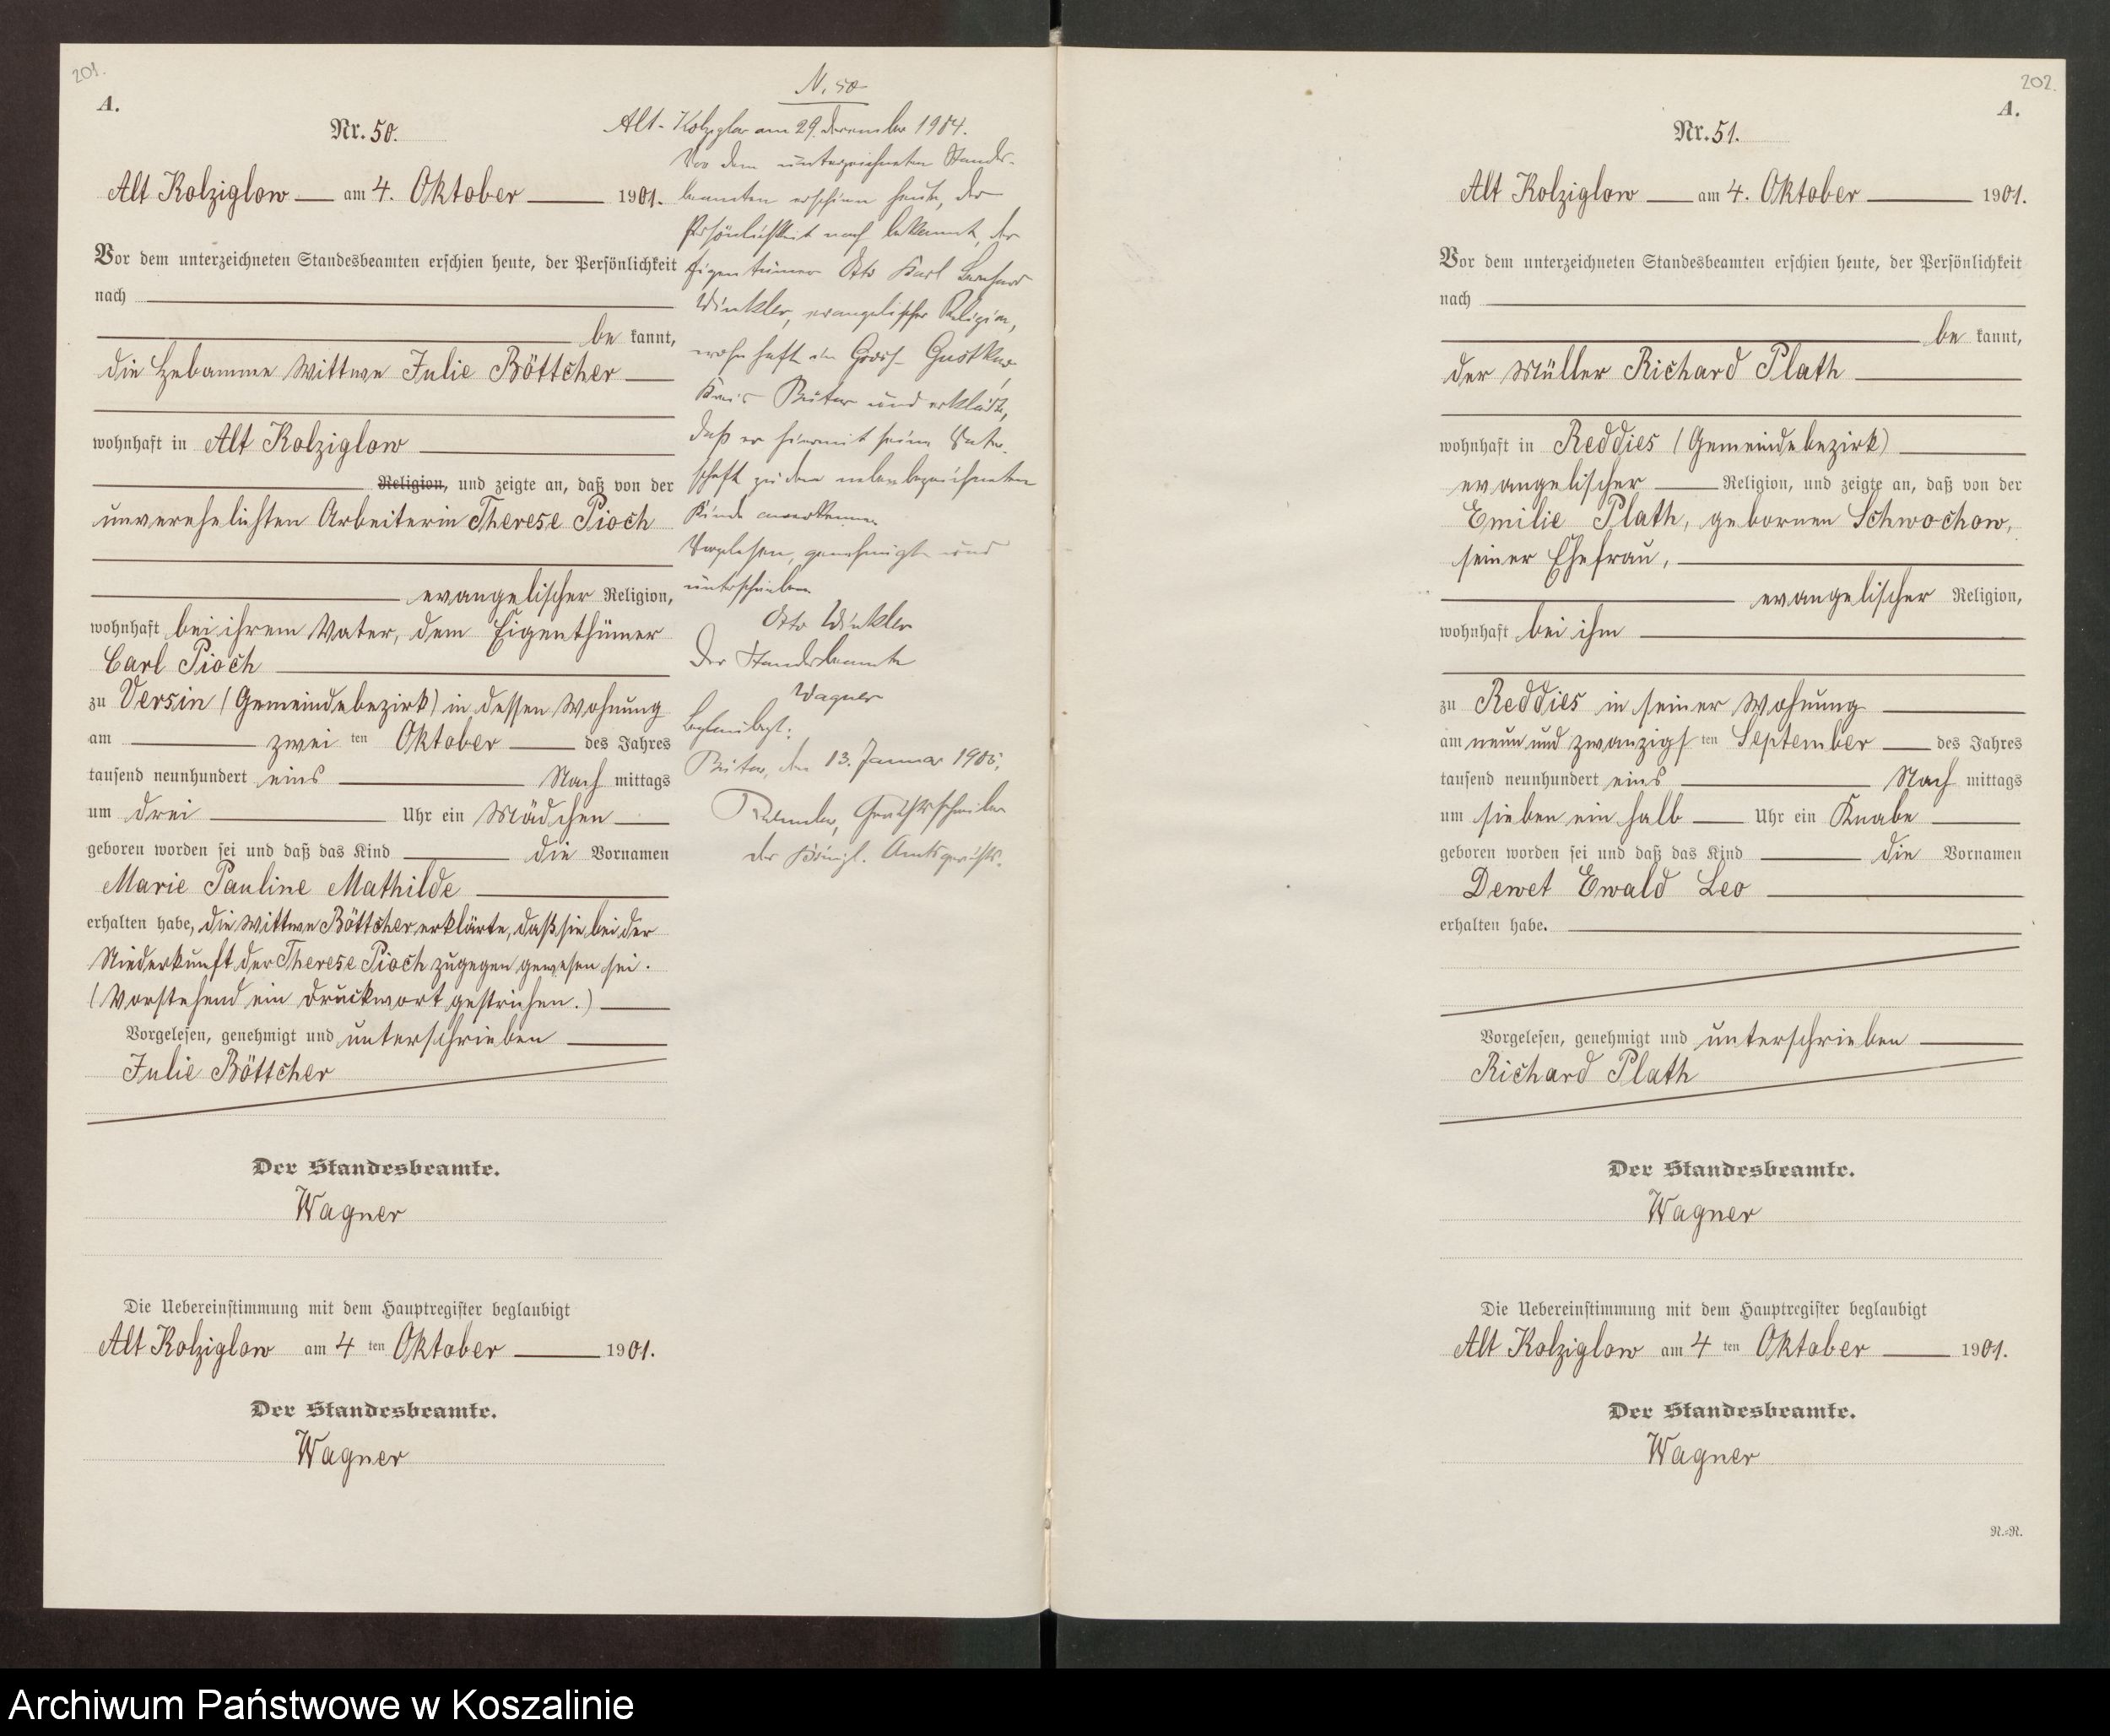 201.
A.
Nr. 50.
Alt Kolziglow am 4. Oktober 1901.
Vor dem unterzeichneten Standesbeamten erschien heute, der Persönlichkeit
nach
be kannt,
die Hebamme Wittwe Julie Böttcher
wohnhaft in Alt Kolziglow
Religion, und zeigte an, daß von der
unverehelichten Arbeiterin Therese Pioch
evangelischer Religion,
wohnhaft bei ihrem Vater, dem Eigenthümer
Carl Pioch
zu Versin (Gemeindebezirk) in dessen Wohnung
am zwei ten Oktober des Jahres
tausend neunhundert eins Nach mittags
um drei Uhr ein Mädchen
geboren worden sei und daß das Kind die Vornamen
Marie Pauline Mathilde
erhalten habe, die Wittwe Böttcher erklärte, daß sie bei der
Niederkunft der Therese Pioch zugegen gewesen sei.
(Vorstehend ein Druckwort gestrichen.)
Vorgelesen, genehmigt und unterschrieben
Julie Böttcher
Der Standesbeamte.
Wagner
Die Uebereinstimmung mit dem Hauptregister beglaubigt
Alt Kolziglow am 4 ten Oktober 1901.
Der Standesbeamte.
Wagner
N. 50
Alt-Kolziglow am 29. December 1904.
Vor dem unterzeichneten Standes-
beamten erschien heute, der
Persönlichkeit nach bekannt, der
Eigentümer Otto Karl Bernhard
Winkler, evangelischer Religion,
wohnhaft in Gross-Gustkow,
Kreis Bütow und erklärte,
daß er hiermit seine Vater-
schaft zu dem nebenbezeichneten
Kinde anerkenne.
Vorgelesen, genehmigt und
unterschrieben
Otto Winkler
Der Standesbeamte
Wagner
Beglaubigt:
Bütow, den 13. Januar 1905.
Gerichtsschreiber
des Königl. Amtsgerichts.
202.
A.
Nr. 51.
Alt Kolziglow am 4. Oktober 1901.
Vor dem unterzeichneten Standesbeamten erschien heute, der Persönlichkeit
nach
be kannt,
der Müller Richard Plath
wohnhaft in Reddies (Gemeindebezirk)
evangelischer Religion, und zeigte an, daß von der
Emilie Plath, gebornen Schwochow,
seiner Ehefrau,
evangelischer Religion,
wohnhaft bei ihm
zu Reddies in seiner Wohnung
am neun und zwanzigs ten September des Jahres
tausend neunhundert eins Nach mittags
um sieben ein halb Uhr ein Knabe
geboren worden sei und daß das Kind die Vornamen
Dewet Ewald Leo
erhalten habe.
Vorgelesen, genehmigt und unterschrieben
Richard Plath
Der Standesbeamte.
Wagner
Die Uebereinstimmung mit dem Hauptregister beglaubigt
Alt Kolziglow am 4 ten Oktober 1901.
Der Standesbeamte.
Wagner
N.=R.
Archiwum Państwowe w Koszalinie